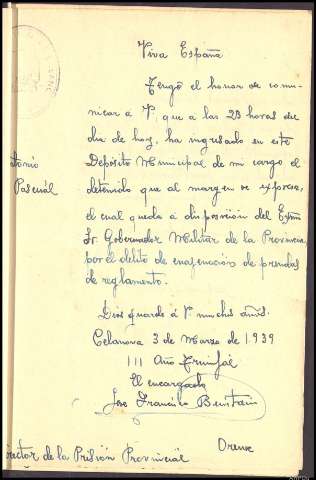 Viva España
Tengo el honor de comu-
nicar a V. que a las 20 horas del
día de hoy, ha ingresado en este
Depósito Municipal de mi cargo el
tonio
detenido que al margen se expresa,
Pascual
el cual queda a disposición del Exmo
Sr. Gobernador Militar de la Provincia,
por el delito de enagenación de prendas
de reglamento.
Dios guarde a V. muchos años.
Celanova 3 de Marzo de 1939
III Año Triunfal
El encargado
Jose Francisco
rector de la Prisión Provincial Orense